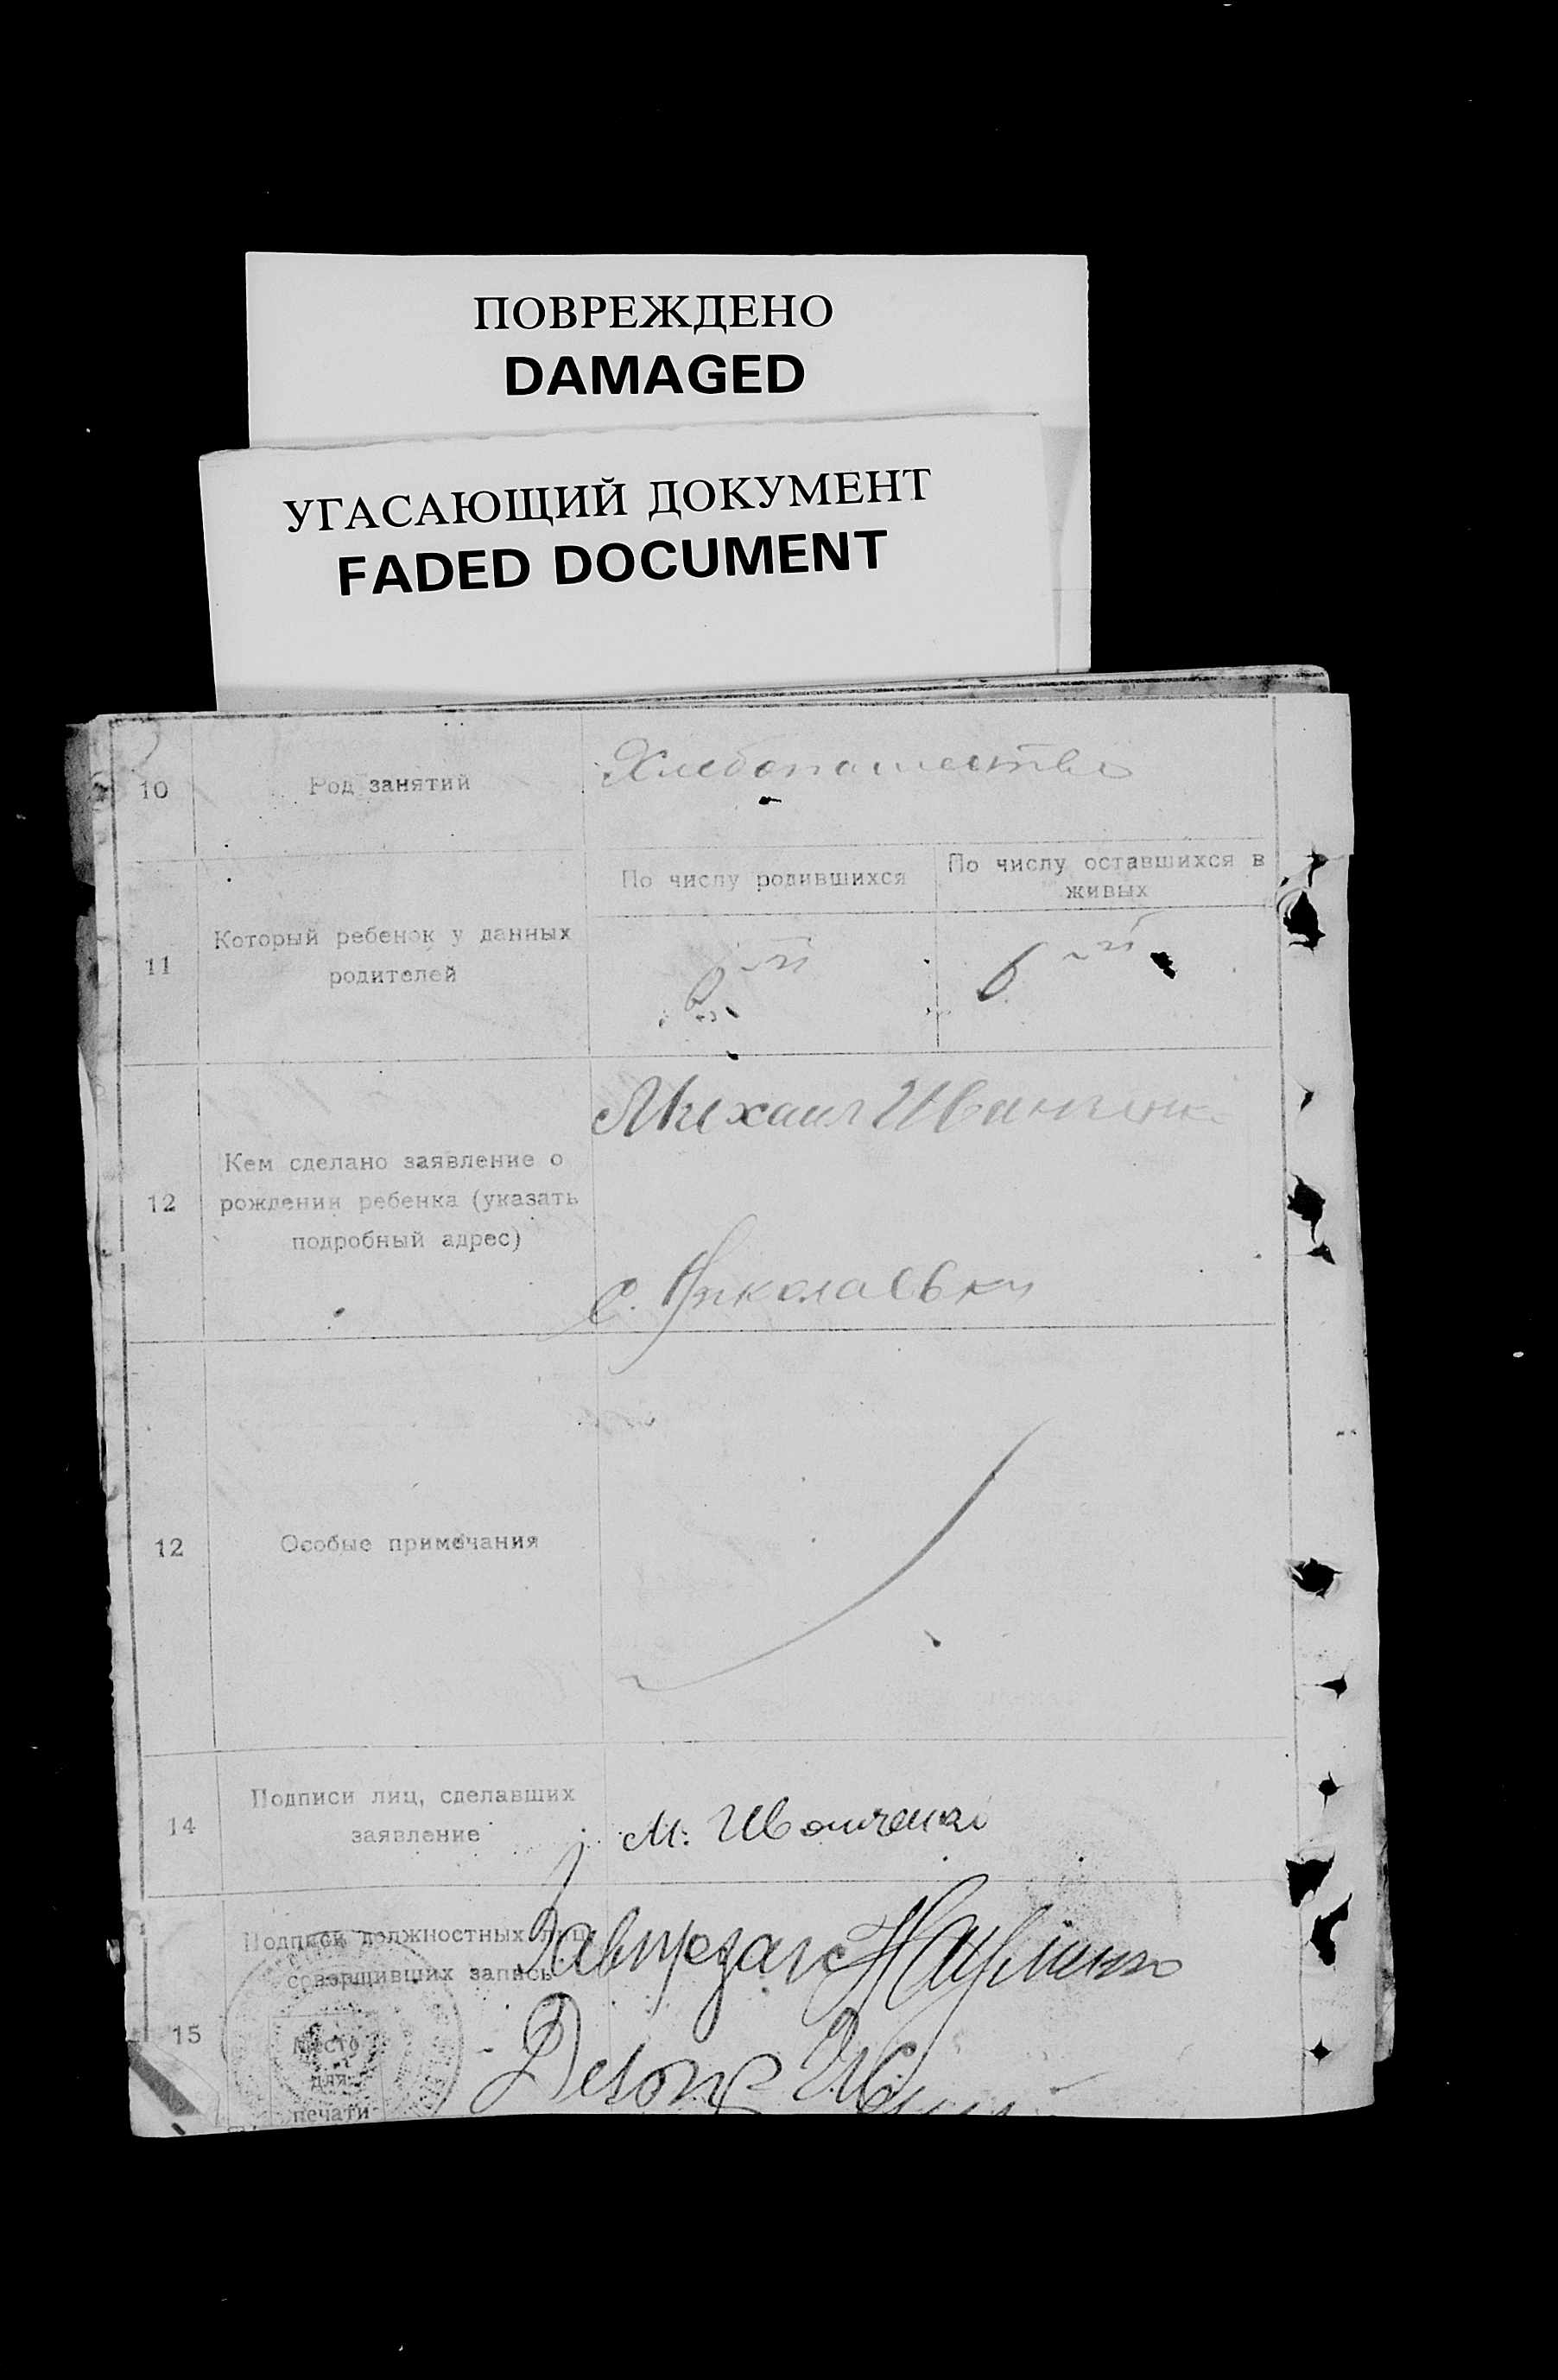 ПОВРЕЖДЕНО
DAMAGED
УГАСАЮЩИЙ ДОКУМЕНТ
FADED DOCUMENT
10
Род занятий
Хлебопашество
11
Который ребенок у данных
родителей
По числу родившихся
По числу оставшихся в
живых
6-й
6-й
12
Кем сделано заявление о
рождении ребенка (указать
подробный адрес)
Михаил Иванченко
с. Николаевки
12
Особые примечания
14
Подписи лиц, сделавших
заявление
М. Иванченко
15
Подписи должностных лиц
совершивших запись
Место
для
печати